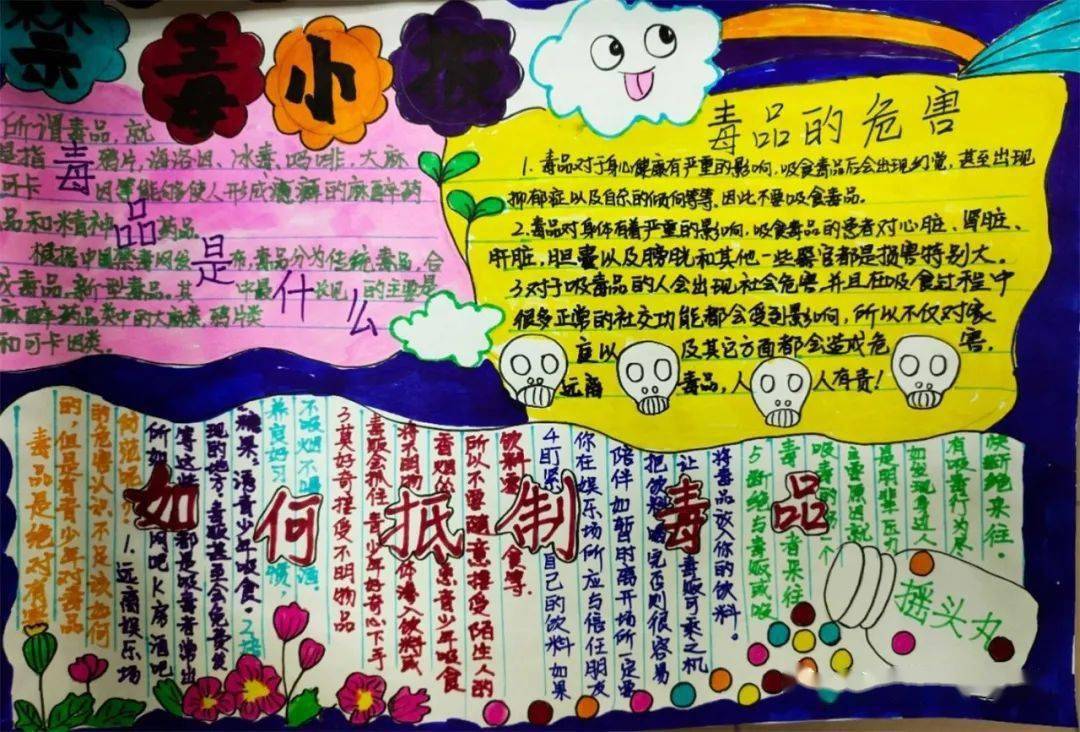 禁毒小报
毒品是什么
所谓毒品，就
是指 鸦片、海洛因、冰毒、吗啡、大麻
可卡 因等能够使人形成瘾癖的麻醉药
品和精神 药品
根据中国禁毒网发 布，毒品分为传统毒品，合
成毒品，新型毒品。其 中最 常见 的主要是
麻醉药品类中的大麻类，鸦片类
和可卡因类。
毒品的危害
1. 毒品对于身心健康有严重的影响，吸食毒品后会出现幻觉，甚至出现
抑郁症以及自杀的倾向等等，因此不要吸食毒品。
2.毒品对身体有着严重的影响，吸食毒品的患者对心脏、肾脏、
肝脏，胆囊以及膀胱和其他一些器官都是损害特别大。
3对于吸毒品的人会出现社会危害，并且在吸食过程中
很多正常的社交功能都会受到影响，所以不仅对家
庭以 及其它方面都会造成危 害.
远离 毒品，人 人有责！
如何抵制毒品
毒品是绝对有害
的，但是有青少年对毒品
的危害认识不足该如何
防范呢？ 1.远离娱乐场
所如 网吧K房酒吧
等这些 都是吸毒者常出
现的地方，毒贩甚至会免费发
糖果，诱青少年吸食。2.培
养良好习 惯，
不吸烟不喝 酒。
3莫好奇接受不明物品
毒贩会抓住青少年好奇心下手
将不明物 你潜入饮料或
香烟 青少年吸食
所以不要随意接受陌生人的
饮料零 食等.
4盯紧 自己的饮料 如果
你在娱乐场所应与信任朋友
陪伴如暂时离开场所一定要
把饮料喝完否则很容易
让 毒贩可乘之机
将毒品放入你的饮料。
5断绝与毒贩或吸
毒 者来往
吸毒的 一个
主要原因就
是
如发现身边人
有吸毒行为尽
快断绝来往.
摇头丸